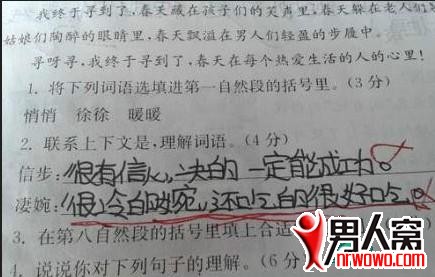 我终于寻到了,春天藏在孩子们的笑声里,春天躲在老人们
姑娘们陶醉的眼睛里,春天飘溢在男人们轻盈的步履中。
寻呀寻,我终于寻到了,春天在每个热爱生活的人的心里!
1. 将下列词语选填进第一自然段的括号里。(3分)
悄悄 徐徐 暖暖
2. 联系上下文是,理解词语。(4分)
信步:很有信心,决的一定能成功。
凄婉:很冷的碗,还吃的很好吃。
3. 在第八自然段的括号里填上合适
4. 说说你对下列句子的理解。(6分
男人窝
nrwowo.com